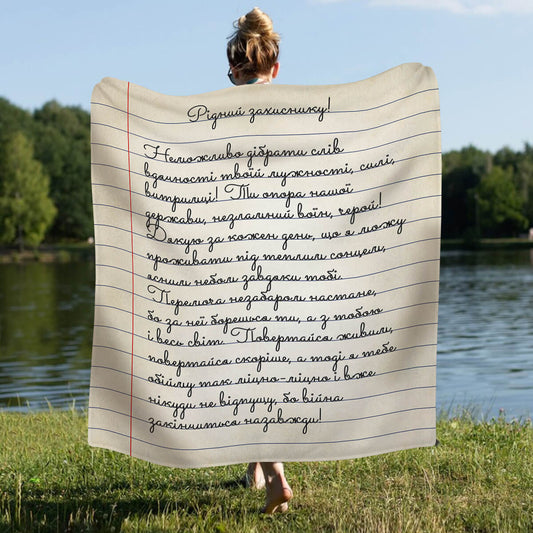 Рідний захиснику!
Неможливо дібрати слів
вдячності твоїй мужності, силі,
витримці! Ти опора нашої
держави, незламний воїн, герой!
Дякую за кожен день, що я можу
проживати під теплим сонцем,
ясним небом завдяки тобі.
Перемога незабаром настане,
бо за неї борешся ти, а з тобою
і весь світ. Повертайся живим,
повертайся скоріше, а тоді я тебе
обійму так міцно-міцно і вже
нікуди не відпущу, бо війна
закінчиться назавжди!